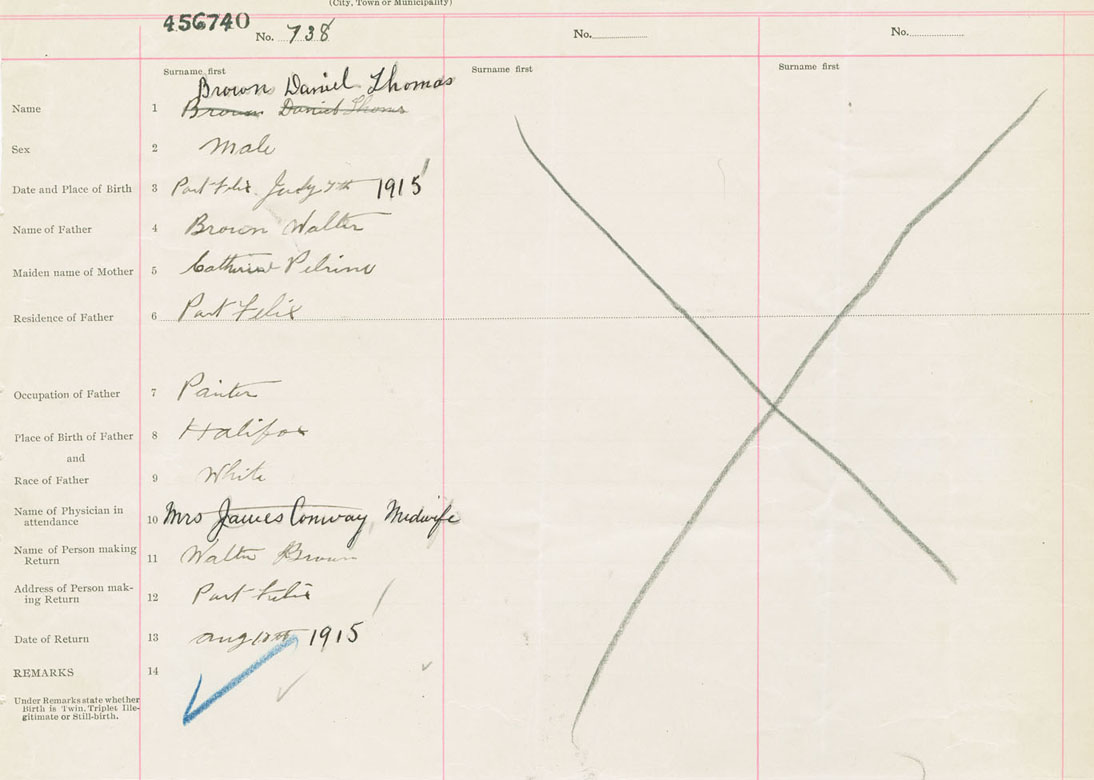 (City, Town or Municipality)
456740
No. 738
No.
No.
Surname first
Surname first
Surname first
Brown Daniel Thomas
Name 1 Brown Daniel Thomas
Sex 2 Male
Date and Place of Birth 3 Port Felix July 7th 1915
Name of Father 4 Brown Walter
Maiden name of Mother 5 Catherine Pelrine
Residence of Father 6 Port Felix
Occupation of Father 7 Painter
Place of Birth of Father 8 Halifax
and
Race of Father 9 White
Name of Physician in
attendance 10 Mrs James Conway, Midwife
Name of Person making
Return 11 Walter Brown
Address of Person mak-
ing Return 12 Port Felix
Date of Return 13 Aug 1915
REMARKS 14
Under Remarks state whether
Birth is Twin, Triplet Ille-
gitimate or Still-birth.